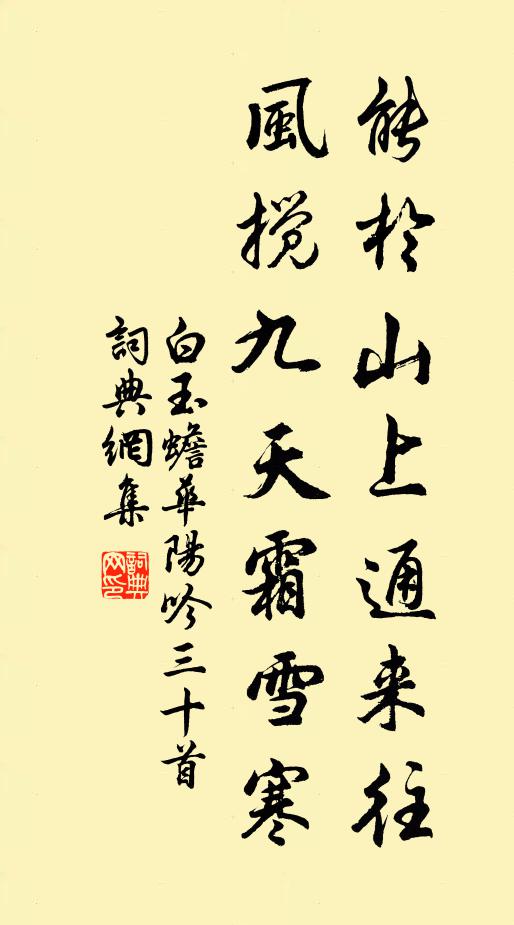 能於山上通来往
風搅九天霜雪寒
白玉蟾華陽吟三十首
詞典網集
詞典网印